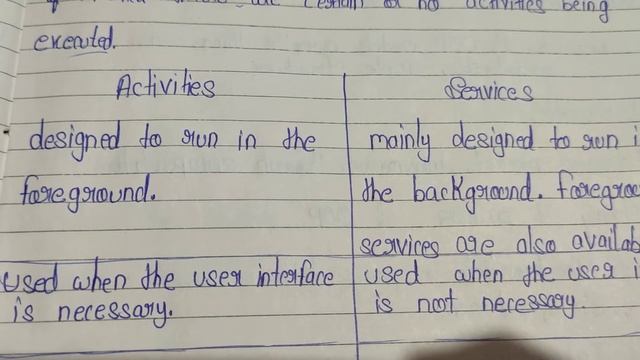 activities being
executed.
Activities
Services
designed to run in the
foreground.
mainly designed to run
the background.
services are also
used when the user interface
is necessary.
used when the user
is not necessary